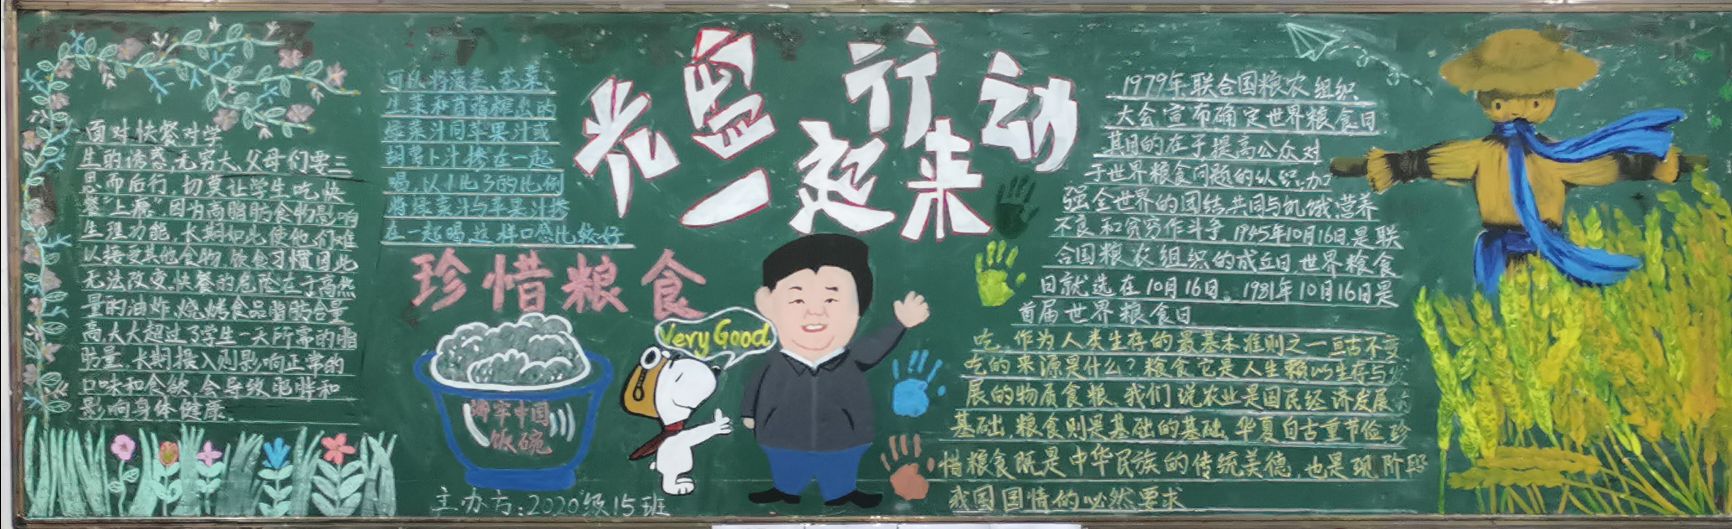 面对快餐对学
生的诱惑,无穷大,父母们要三
思而后行,切莫让学生吃快
餐"上瘾"因为高脂肪食物影响
生理功能,长期如此使他们难
以接受其他食物,饮食习惯因此
无法改变,快餐的危险在于高热
量的油炸,烧烤食品脂肪含量
高,大大超过了学生一天所需的脂
肪量,长期摄入则影响正常的
口味和食欲,会导致肥胖和
影响身体健康.
可以将菠菜、芹菜
生菜和首榨出的
绿菜汁同苹果汁或
胡萝卜汁掺在一起
喝,以1比3的比例
将绿菜汁与苹果汁掺
在一起喝,这样口感比较好
光盘行动
一起来
珍惜粮食
Very Good
端牢中国
饭碗
主办方:2020级15班
1979年联合国粮农组织
大会宣布确定世界粮食日
其目的在于提高公众对
于世界粮食问题的认识,加
强全世界的团结,共同与饥饿,营养
不良和贫穷作斗争,1945年10月16日是联
合国粮农组织的成立日,世界粮食
日就选在10月16日。1981年10月16日是
首届世界粮食日
吃,作为人类生存的最基本准则之一亘古不变
吃的来源是什么?粮食,它是人生赖以生存与发
展的物质食粮,我们说农业是国民经济发展的
基础,粮食则是基础的基础,华夏自古重节俭,珍
惜粮食既是中华民族的传统美德,也是现阶段
我国国情的必然要求